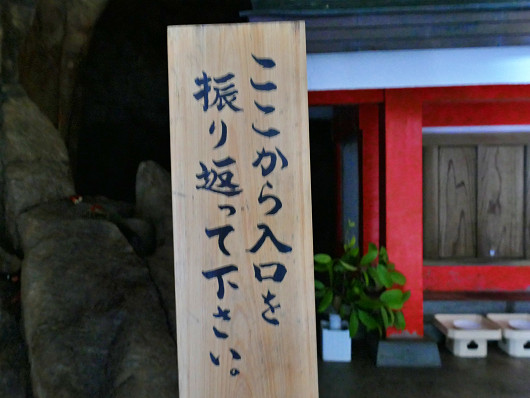 ここから入口を
振り返って下さい。